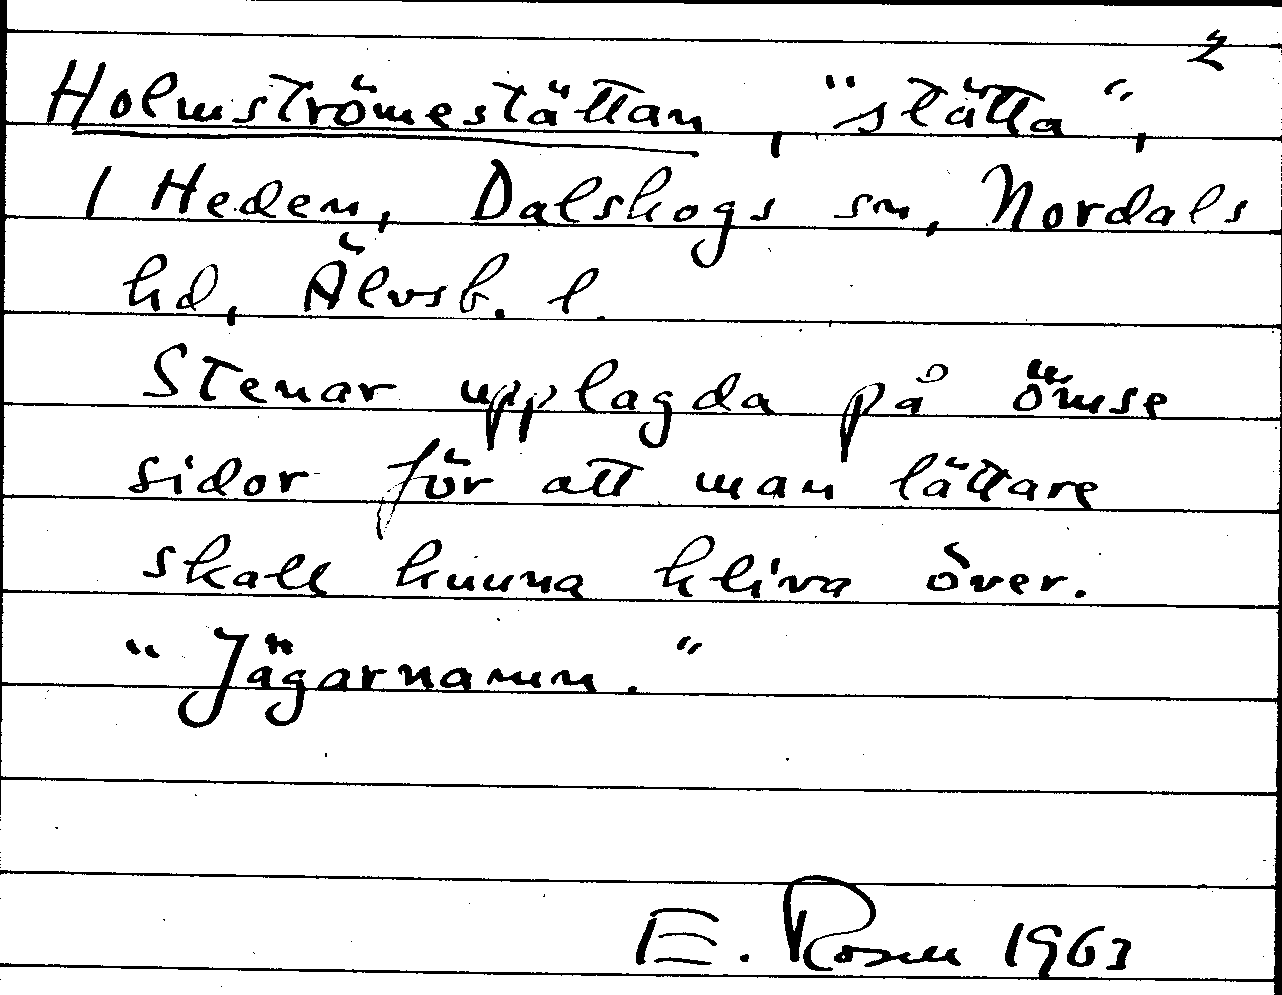 2
Holmströmestättan, "stätta",
1 Heden, Dalskogs sn, Nordals
hd, Älvsb. l.
Stenar upplagda på ömse
sidor för att man lättare
skall kunna kliva över.
"Jägarnamn."
E. Rosen 1963